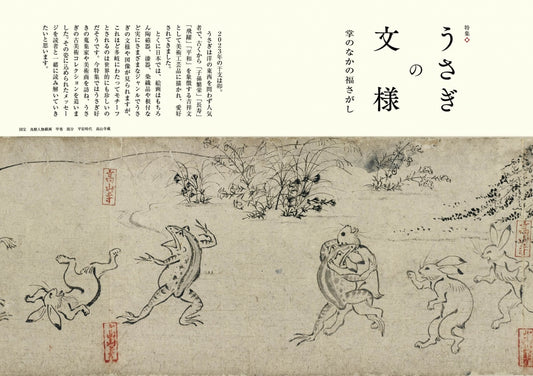 特集◆
うさぎの文様
掌のなかの福さがし
2023年の干支は卯。
うさぎは洋の東西を問わず人気
者で、古くから「子孫繁栄」「長寿」
「飛躍」「平和」を象徴する吉祥文
として美術工芸品に描かれ、愛好
されてきました。
とくに日本では、絵画はもちろ
ん陶磁器、漆器、染織品や根付な
ど実にさまざまなジャンルでうさ
ぎの文様や図像が見られますが、
これほど多岐にわたってモチーフ
とされるのは世界的にも珍しいの
だそうです。今特集ではうさぎ好
きの蒐集家や美術商を訪ね、うさ
ぎの古美術コレクションを追いま
した。その姿に込められたメッセー
ジを読者と一緒に読み解いていき
たいと思います。
国宝 鳥獣人物戯画 甲巻 部分 平安時代 高山寺蔵
高山寺
高山寺
高山寺